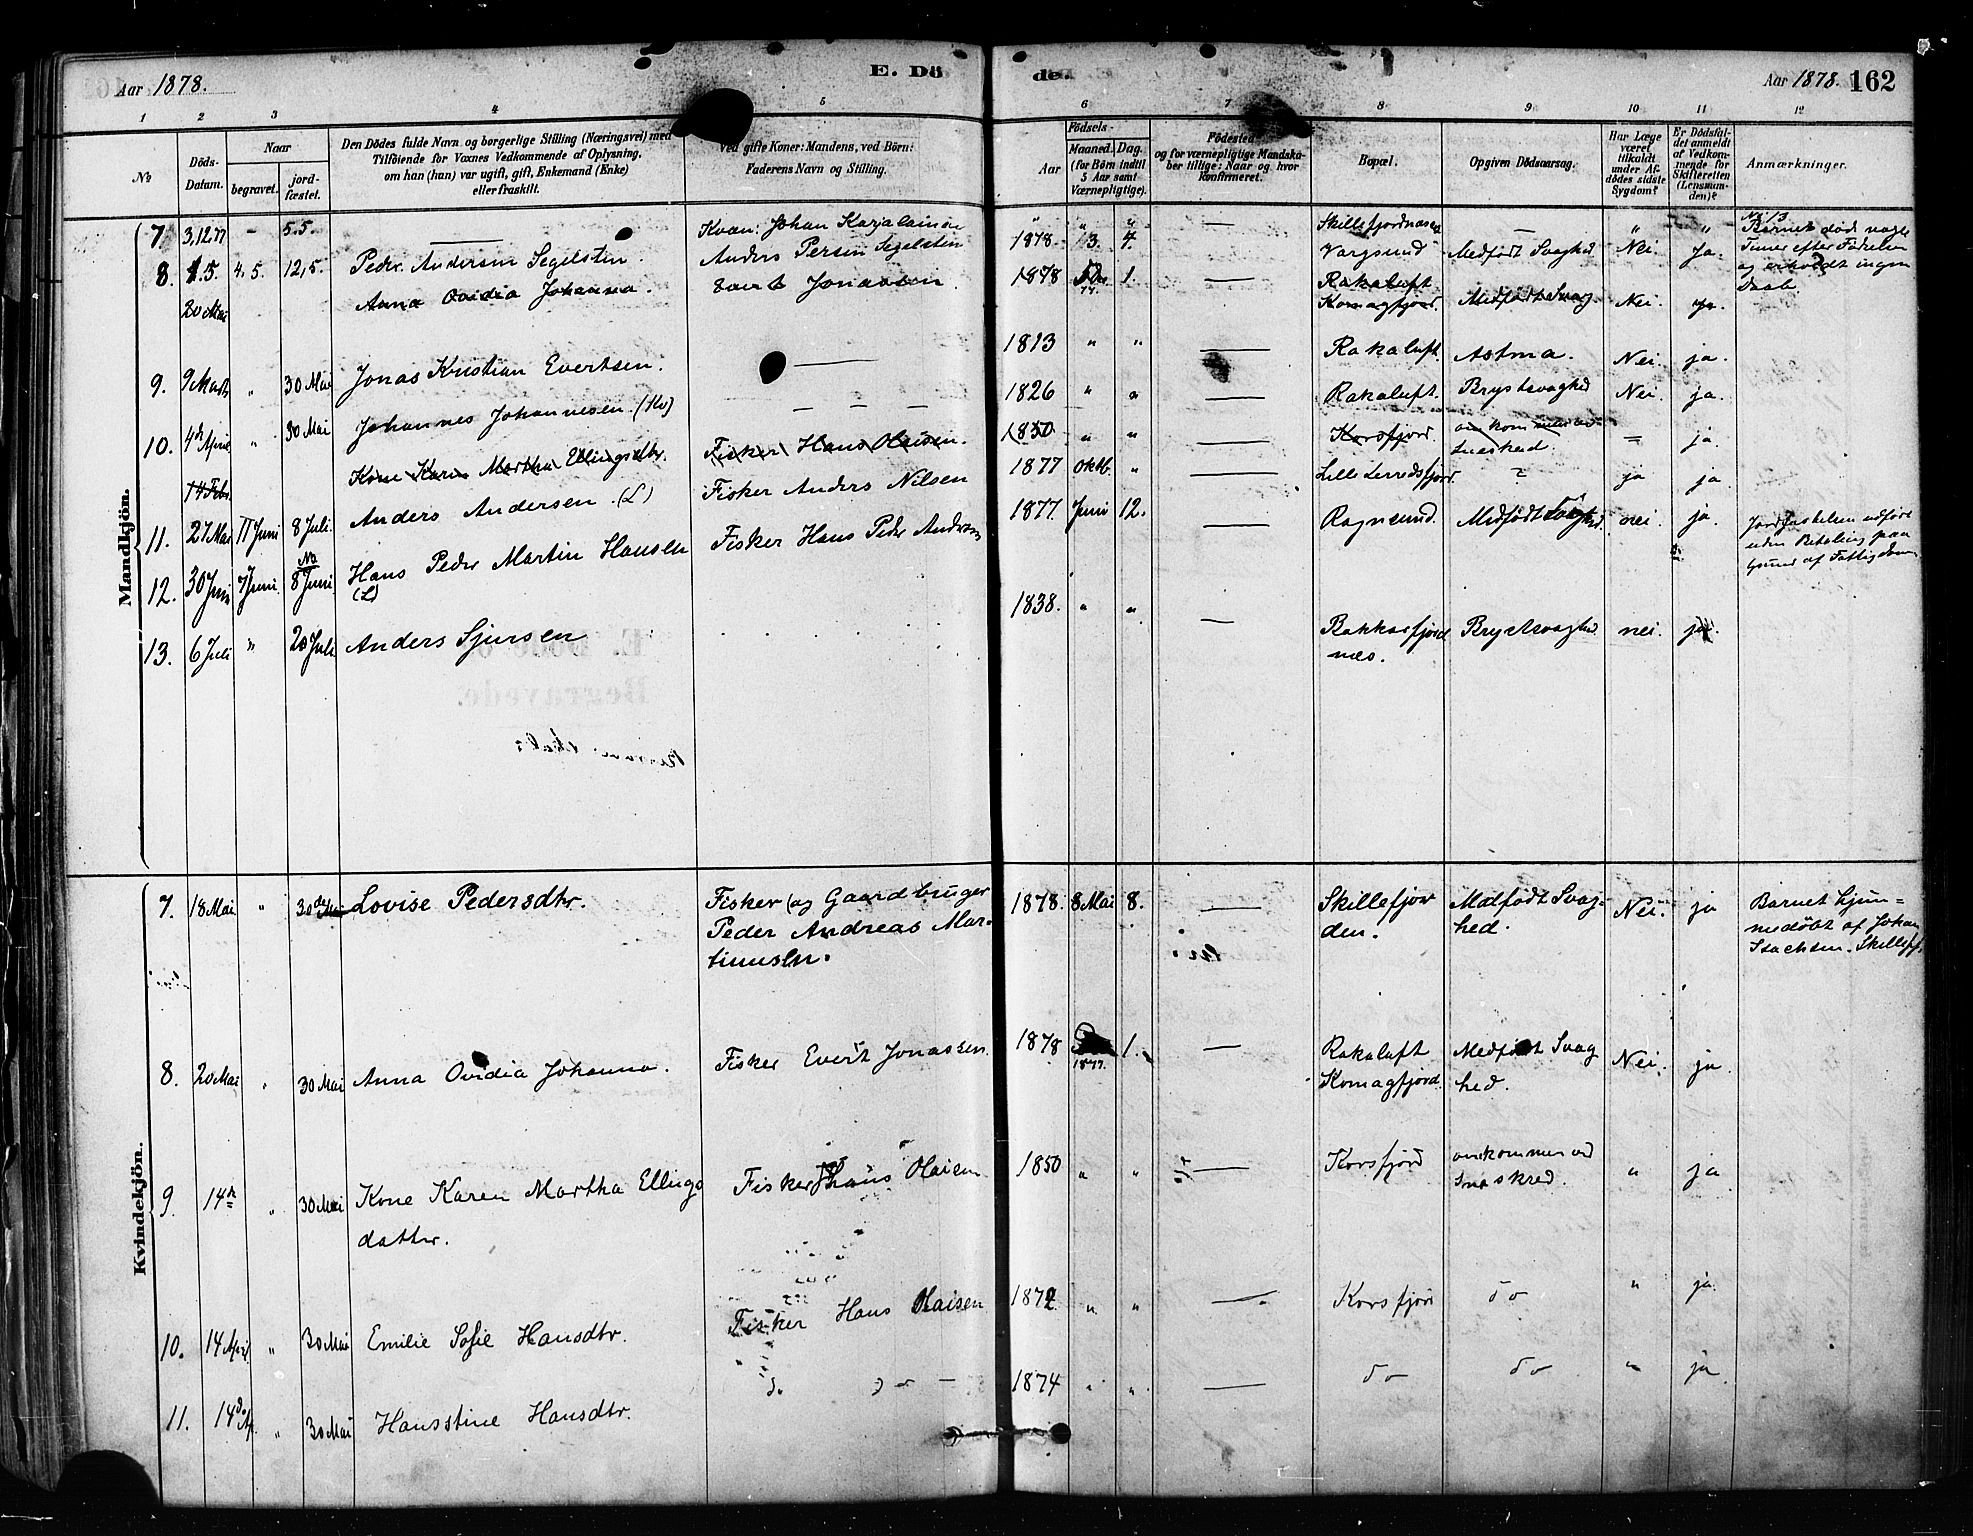 Aar 1878.
E. Dö
de.
Aar 1878. 162
1 2 3 4 5 6 7 8 9 10 11 12
№
Döds-
Datum.
Naar
begravet.
jord-
fæstet.
Den Dödes fulde Navn og borgerlige Stilling (Næringsvei) med
Tilföiende for Voxnes Vedkommende af Oplysning,
om han (hun) var ugift, gift, Enkemand (Enke)
eller fraskilt.
Ved gifte Koner: Mandens, ved Börn:
Faderens Navn og Stilling.
Födsels-
Aar
Maaned. Dag.
(for Börn indtil
5 Aar samt
Værnepligtige).
Födested
og for værnepligtige Mandska-
ber tillige: Naar og hvor
konfirmeret.
Bopæl.
Opgiven Dödsaarsag.
Har Læge
været
tilkaldt
under Af-
dödes sidste
Sygdom?
Er Dödsfal-
det anmeldt
af Vedkom-
mende for
Skifteretten
(Lensman-
den)?
Anmærkninger.
Mandkjön.
7 3,12.77 - 5.5. — Kvæn: Johan Karjalainen " " " — Skillefjordnæsen — " "
No 13
Barnet död nogle
Timer efter Födselen
og erholdt ingen
Daab
8. 1.5. 4.5. 12,5. Peder Andersen Segelsten. Anders Persen Segelsten 1878 13. 4. Vargsund Medfödt Svaghed Nei. Ja.
20 Mai Anna Ovidia Johanna. Evert Jonassen. 1878 1. — Rakaluft
Komagfjord. Medfödt Svag. Nei. ja.
9. 9 Marts " 30 Mai Jonas Kristian Evertsen. — 1813 " " — Rakaluft. Astma. Nei. ja.
10. 4de April " 30 Mai Johannes Johannesen (Kv) — — — 1826 " " — Rakaluft. Brystsvaghed Nei. ja.
14 Febr Kone Karen Martha Ellingsdtr. Fisker Hans Olaisen. 1850 " " — Korsfjord. omkom
Sneskred. = ja.
11. 27 Mai 11 Juni 8 Juli. Anders Andersen. (L) Fisker Anders Nilsen 1877 Oktb. " — Lille Lerredsfjord ja ja.
12. 30 Juni 7 Juni. 8 Juni Hans Peder Martin Hansen
(L) Fisker Hans Peder Andersen 1877. Juni 12. — Rognsund. Medfödt Svaghed. nei. ja.
Jordfæstelsen udfört
uden Betaling paa
Grund af Fattigdom
13. 6 Juli " 20 Juli Anders Sjursen 1838. " " — Bakkarfjord
næs. Brystsvaghed. nei. ja.
E. Döde o
Begravede.
Kvindekjön.
7. 18 Mai " 30de Mai Lovise Pedersdtr. Fisker (og Gaardbruger
Peder Andreas Mar-
tinusen. 1878. 8 Mai 8. — Skillefjor
den. Medfödt Svag-
hed. Nei. ja Barnet hjem=
medöbt af Johan
Isachsen. Skillefj.
8. 20 Mai " 30 Mai Anna Ovidia Johanna. Fisker Evert Jonassen. 1878 1877. 1. — Rakaluft
Komagfjord. Medfödt Svag
hed. Nei. ja.
9. 14de " 30 Mai Kone Karen Martha Ellings
datter. Fisker Hans Olaisen 1850 " " — Korsfjord omkommen ved
Sneskred. " ja
10. 14 April " 30 Mai Emilie Sofie Hansdtr. Fisker Hans Olaisen 1872 " " — Korsfjord do " ja.
11. 14de Ap. " 30 Mai Hansstine Hansdtr. do — 1874 " " — do do " ja.